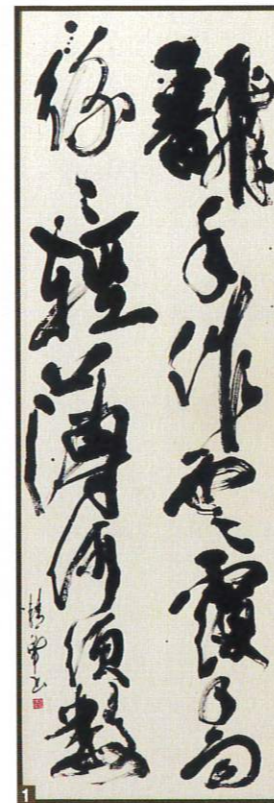 飜手作雲覆手雨
紛々輕薄何須數
1